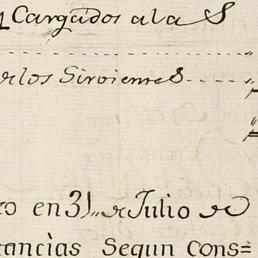 Cargados a la S
los Sirvientes
en 31,, de Julio de
tancias Segun Cons=